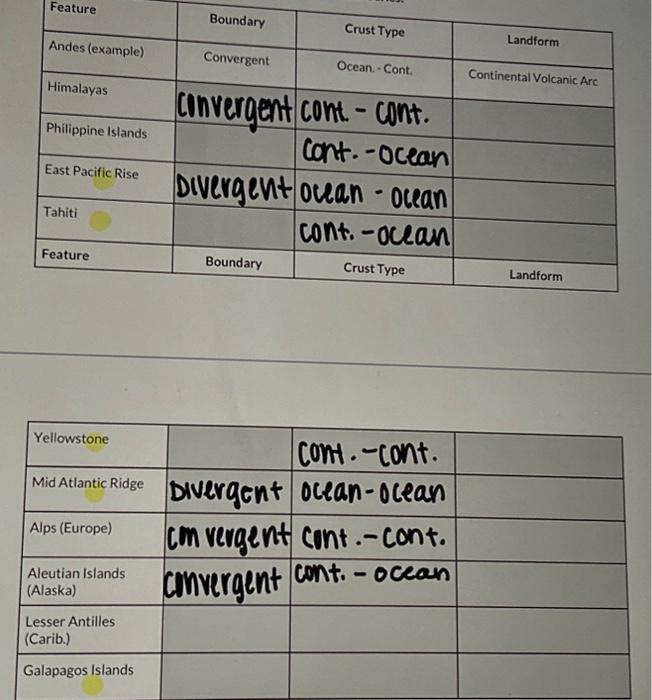 Feature Boundary Crust Type Landform
Andes (example) Convergent Ocean. - Cont. Continental Volcanic Arc
Himalayas convergent cont. - cont.
Philippine Islands cont. - ocean
East Pacific Rise Divergent ocean - ocean
Tahiti cont. - ocean
Feature Boundary Crust Type Landform
Yellowstone cont. - cont.
Mid Atlantic Ridge Divergent ocean - ocean
Alps (Europe) convergent cont. - cont.
Aleutian Islands (Alaska) convergent cont. - ocean
Lesser Antilles (Carib.)
Galapagos Islands